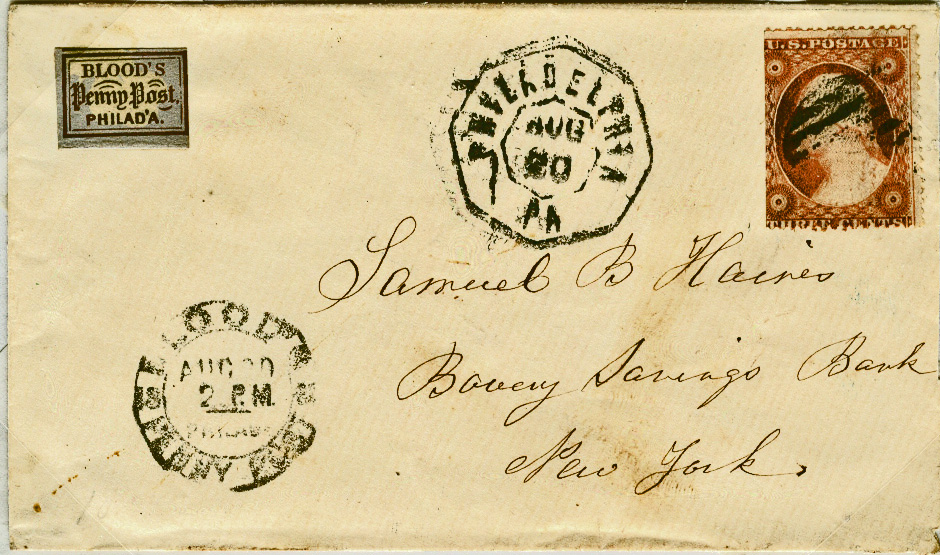 BLOOD'S
Penny Post,
PHILAD'A.
PHILADELPHIA
AUG
20
PA
U.S. POSTAGE
THREE CENTS
Samuel B Haines
Bowery Savings Bank
New York.
BLOOD'S
AUG 20
2 P.M.
PHILADA